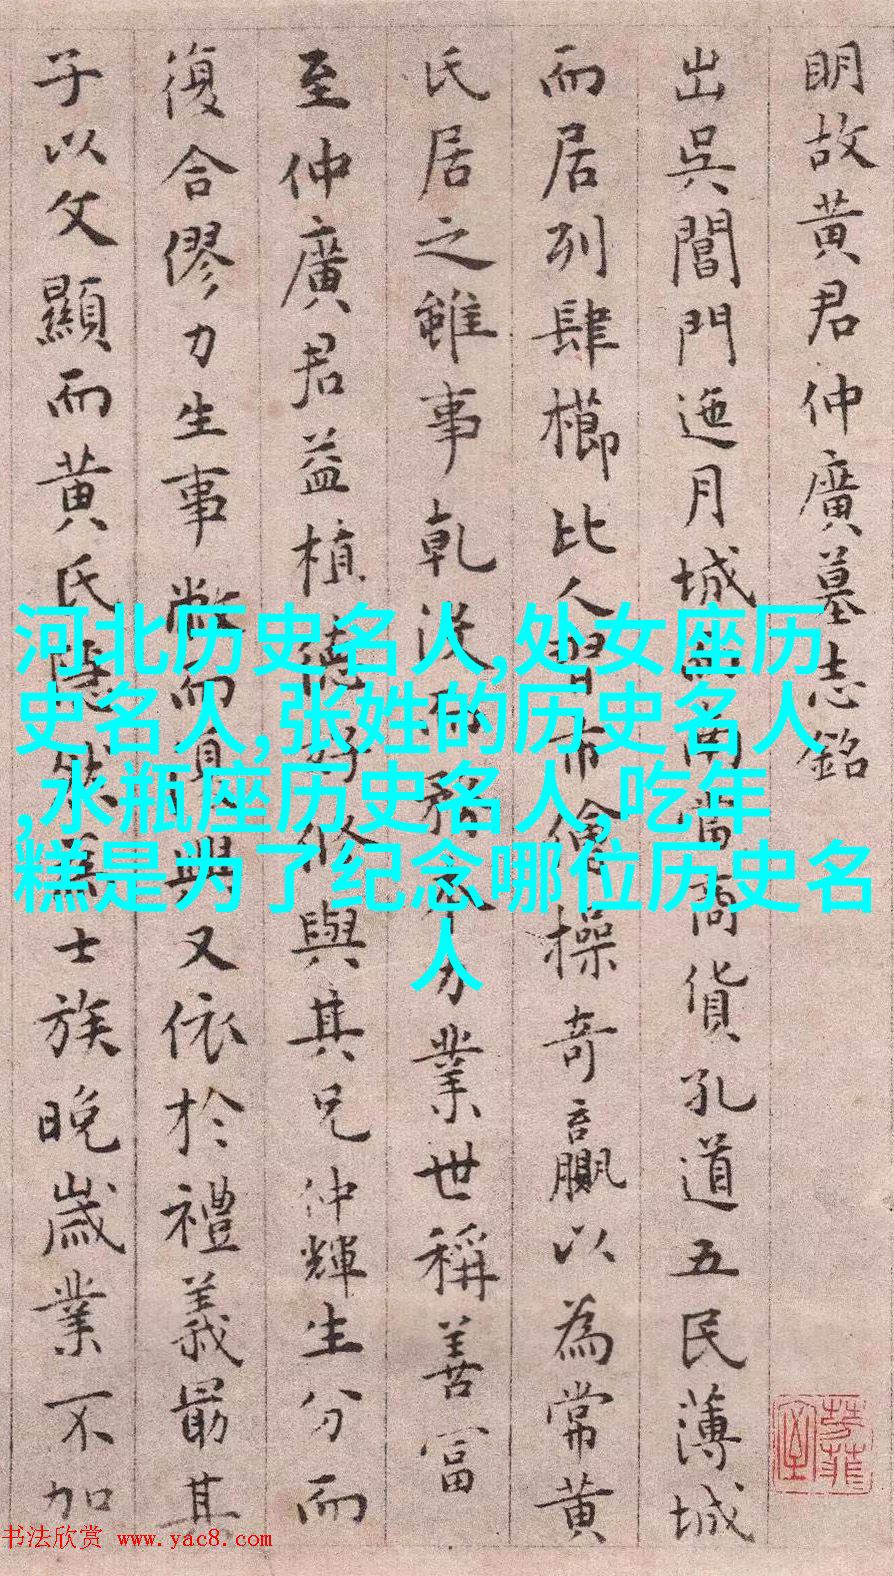 明故黄君仲廣墓志銘
出吳閶門迤月城南當商貨孔道五民薄城
而居列肆櫛比人習市儈操奇贏以為常黄
氏居之雖事乾没而務力業世稱善富
至仲廣君益植德好修與其兄仲輝生分而
復合僇力生事敝而興又依於禮義最其
子以文顯而黄氏隱然為士族晚歲業不加
河北历史名人,处女座历
史名人,张姓的历史名人
,水瓶座历史名人,吃年
糕是为了纪念哪位历史名
人
书法欣赏 www.yac8.com